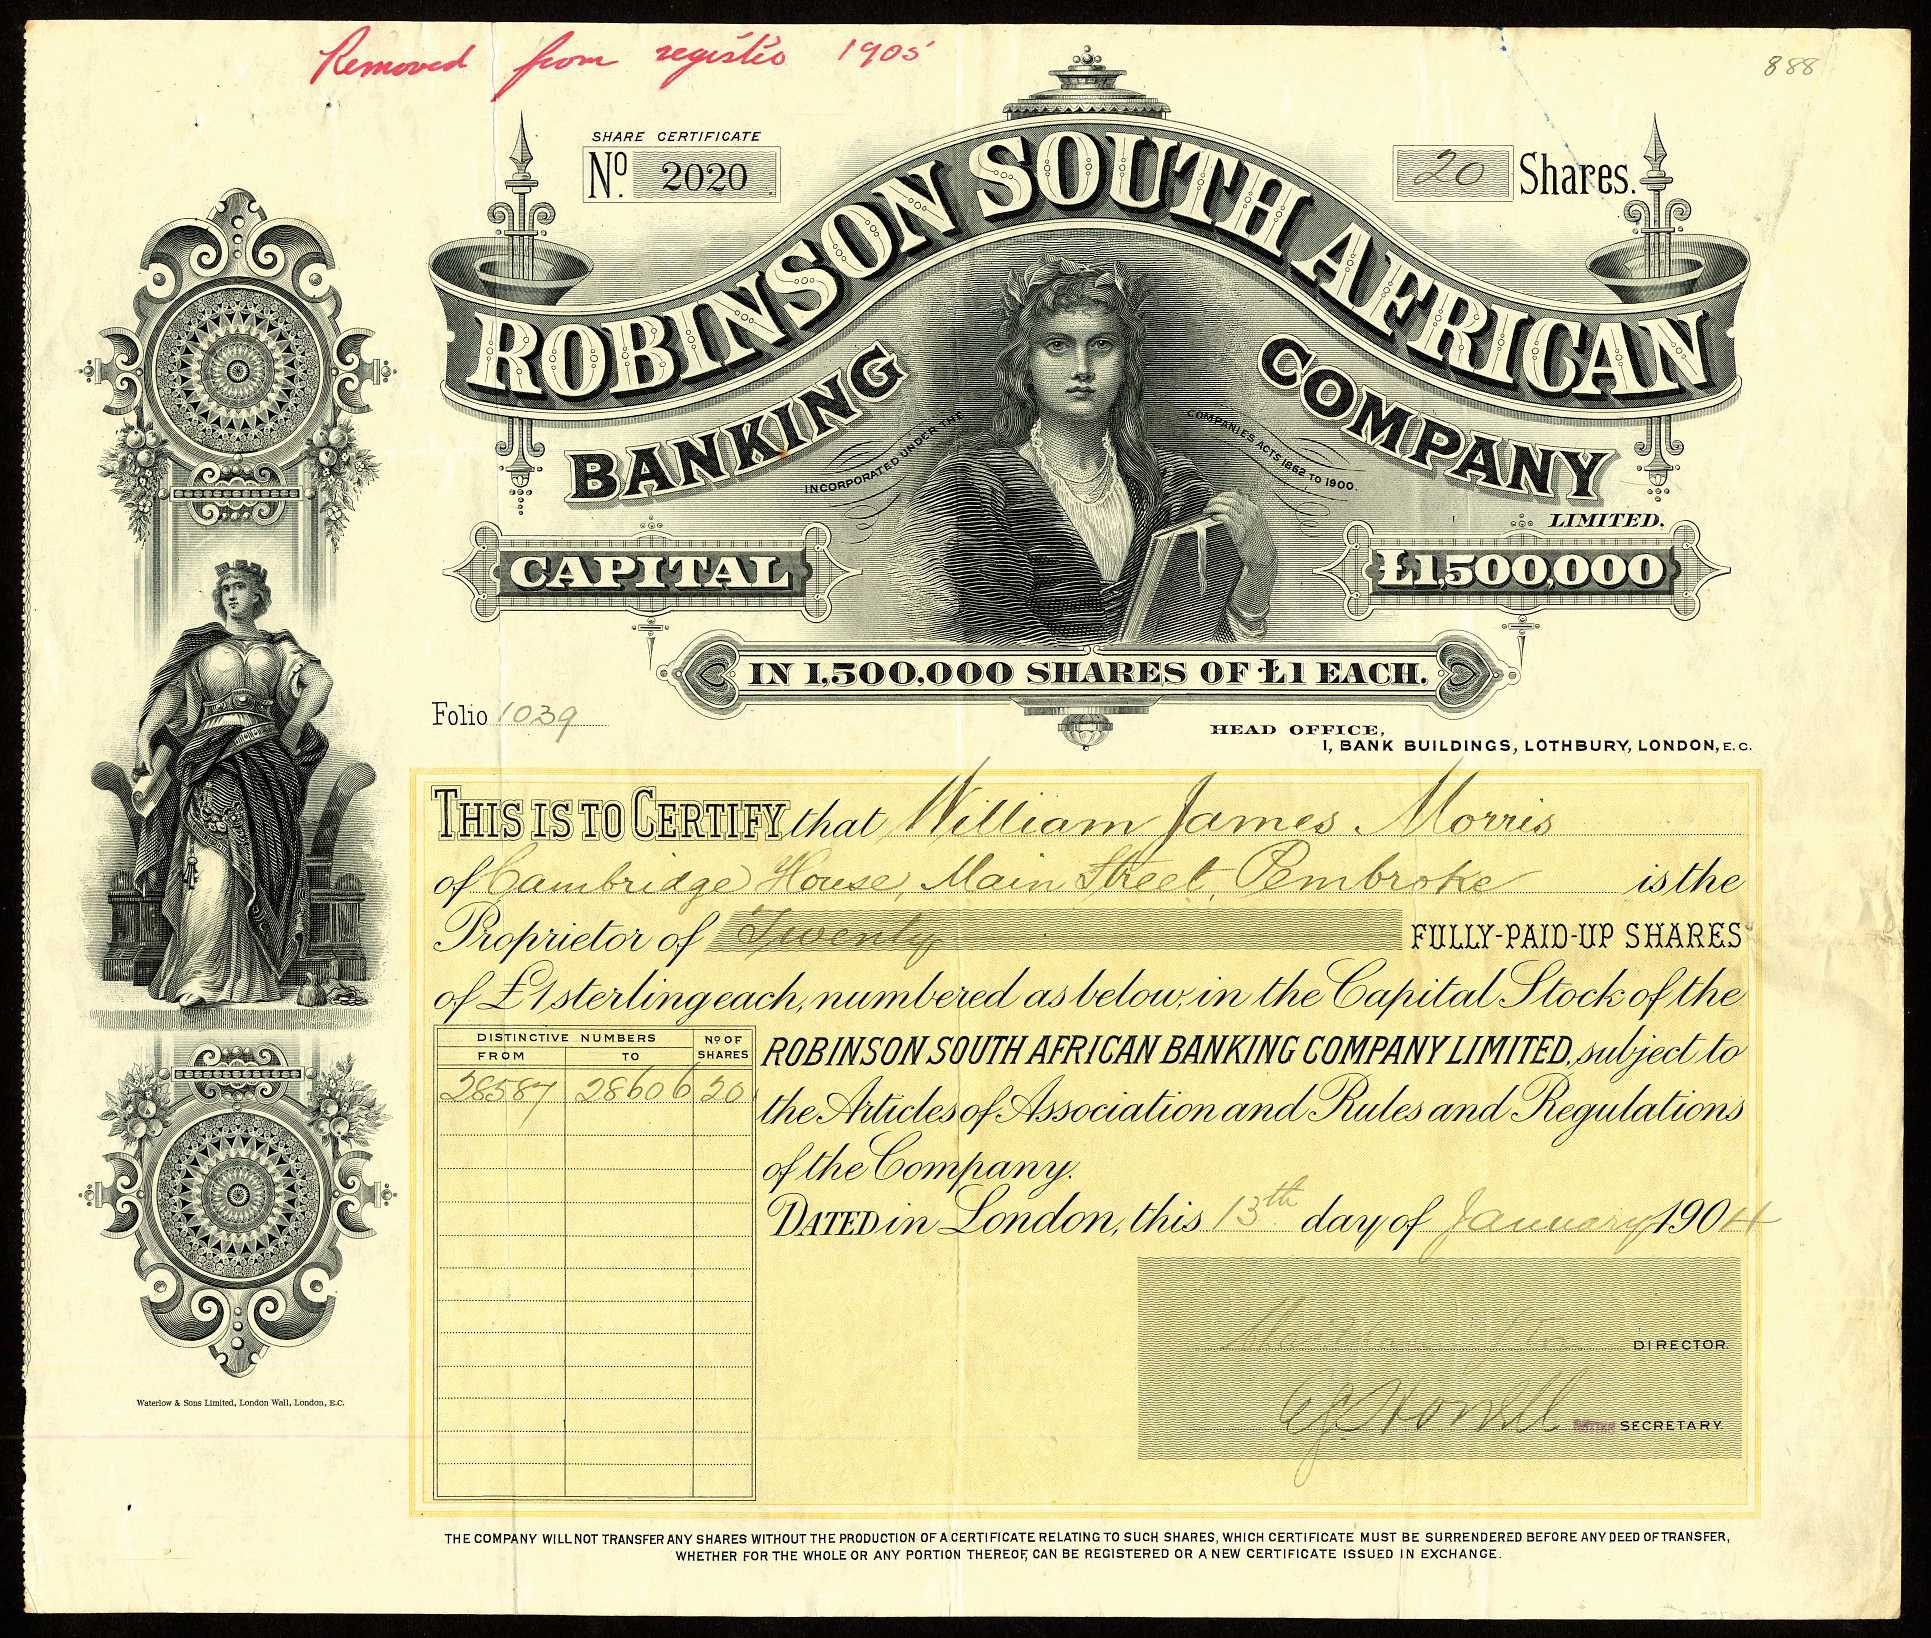 Removed from registio 1905
888
SHARE CERTIFICATE
No. 2020
20 Shares.
ROBINSON SOUTH AFRICAN
BANKING COMPANY
LIMITED.
INCORPORATED UNDER THE COMPANIES ACTS 1862 TO 1900.
CAPITAL £1,500,000
IN 1,500,000 SHARES OF £1 EACH.
Folio 1039
HEAD OFFICE,
1, BANK BUILDINGS, LOTHBURY, LONDON, E.C.
THIS IS TO CERTIFY that William James Morris
of Cambridge House, Main Street, Pembroke is the
Proprietor of Twenty FULLY-PAID-UP SHARES
of £1 sterling each, numbered as below, in the Capital Stock of the
ROBINSON SOUTH AFRICAN BANKING COMPANY LIMITED, subject to
the Articles of Association and Rules and Regulations
of the Company.
DISTINCTIVE NUMBERS No OF SHARES
FROM TO
28587 28606 20
DATED in London, this 13th day of January 1904
DIRECTOR.
SECRETARY.
Waterlow & Sons Limited, London Wall, London, E.C.
THE COMPANY WILL NOT TRANSFER ANY SHARES WITHOUT THE PRODUCTION OF A CERTIFICATE RELATING TO SUCH SHARES, WHICH CERTIFICATE MUST BE SURRENDERED BEFORE ANY DEED OF TRANSFER,
WHETHER FOR THE WHOLE OR ANY PORTION THEREOF, CAN BE REGISTERED OR A NEW CERTIFICATE ISSUED IN EXCHANGE.